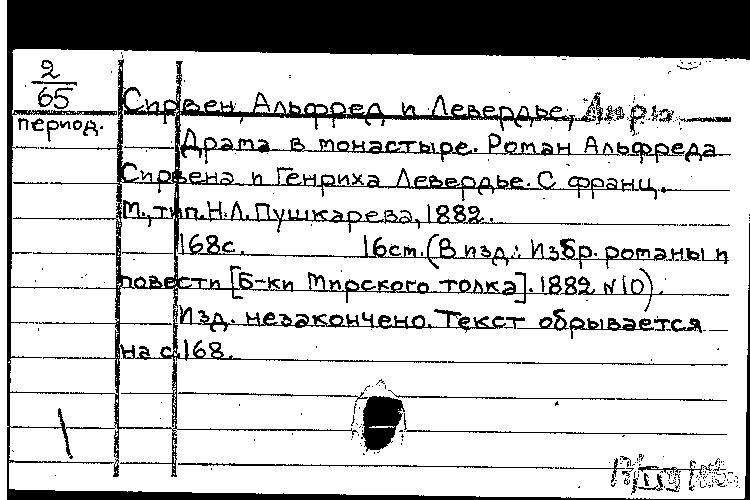 2
65
период.
Сирвен, Альфред и Левердье, Анри.
Драма в монастыре. Роман Альфреда
Сирвена и Генриха Левердье. С франц.
М., тип. Н.Л. Пушкарева, 1882.
168с. 16см. (В изд.: Избр. романы и
повести [Б-ки Мирского толка]. 1882 №10).
Изд. незакончено. Текст обрывается
на с.168.